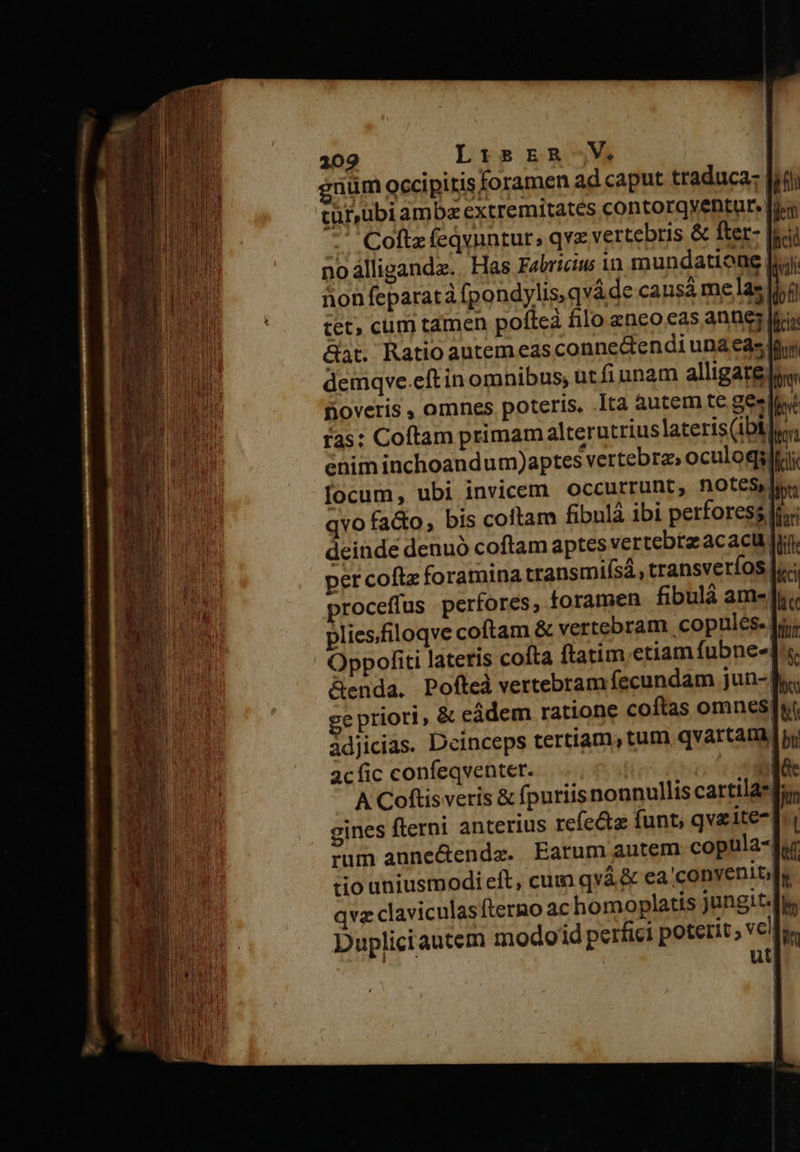 209 LIBER V.
gnúm occipitis foramen ad caput traduca-
túr, ubi ambæ extremitates contorqventur.
Coſtæ ſeqvuntur, qvæ vertebris & ſter-
no alligandæ. Has Fabricius in mundatione
non ſeparatà ſpondylis, qvâ de causâ me la-
tet, cum tamen poſteà filo æneo eas anne-
ctat. Ratio autem eas connectendi una ea-
demqve eſt in omnibus, ut ſi unam alligare
noveris, omnes poteris. Ita autem te ge-
ras: Coſtam primam alterutrius lateris (ibi
enim inchoandum) aptes vertebræ, oculoqꝫ
locum, ubi invicem occurrunt, notes,
qvo facto, bis coſtam fibulâ ibi perfores;
deinde denuò coſtam aptes vertebræ ac acu
per coſtæ foramina transmiſsâ, transverſos
proceſſus perfores, foramen fibulâ am-
plies, filoqve coſtam & vertebram copules.
Oppoſiti lateris coſta ſtatim etiam ſubne-
ctenda. Poſteà vertebram ſecundam jun-
ge priori, & eâdem ratione coſtas omnes
adjicias. Deinceps tertiam, tum qvartam
ac ſic conſeqventer.
A Coſtis veris & ſpuriis nonnullis cartila-
gines ſterni anterius reſectæ ſunt, qvæ ite-
rum annectendæ. Earum autem copula-
tio uniusmodi eſt, cum qvâ & ea convenit,
qvæ claviculas ſterno ac homoplatis jungit.
Duplici autem modo id perfici poterit, vel
ut